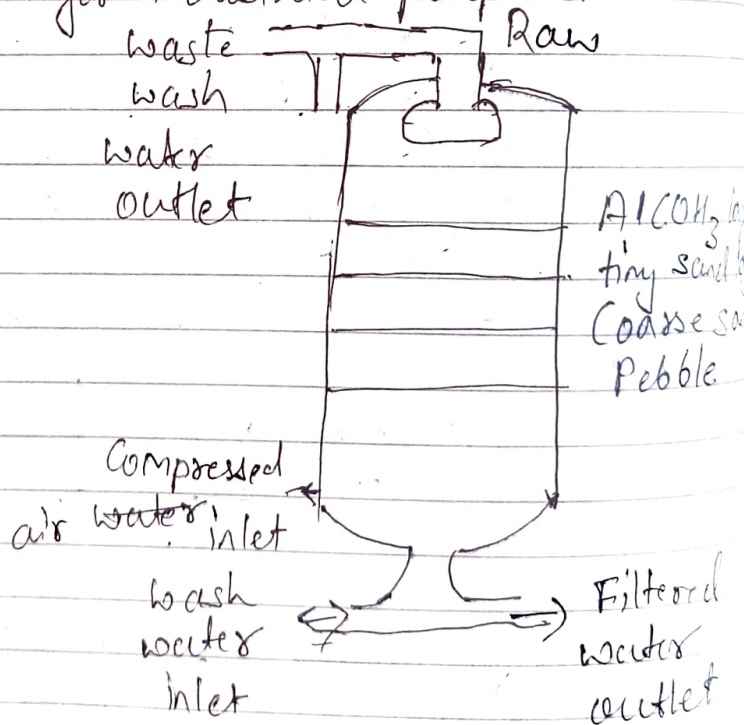 waste
wash
water
outlet
Raw
AlCOH3
tiny sand
Coarse
Pebble
Compressed
air water inlet
wash
water
inlet
Filtered
water
outlet